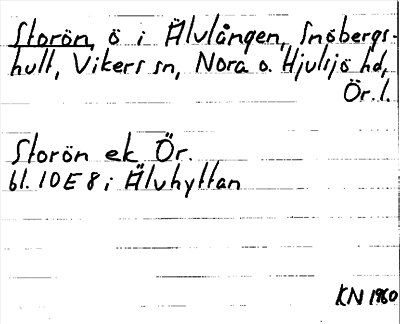 Storön, ö i Älvlången, Snöbergs-
hult, Vikers sn, Nora o. Hjulsjö hd,
Ör. l.
Storön ek Ör.
bl. 10 E 8 i Älvhyttan
KN 1960